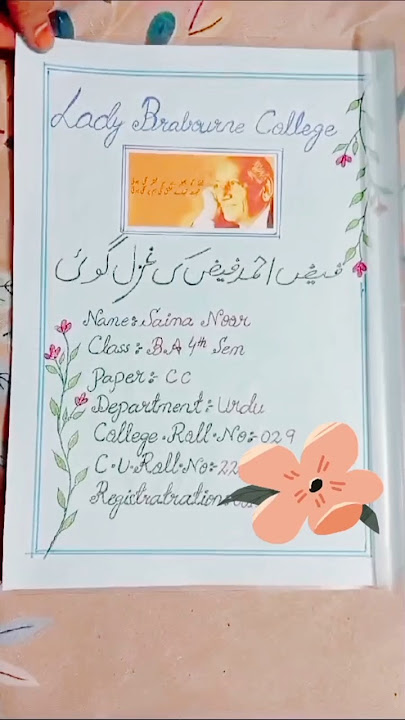 Lady Brabourne College
فیض احمد فیض کی غزل گوئی
Name:- Saina Noor
Class:- B.A 4th Sem
Paper:- CC
Department:- Urdu
College.Roll.No:- 029
C.U.Roll.No:- 22
Registratration